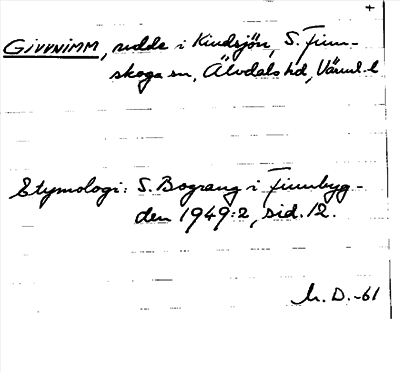 +
GIVVNIMM, udde i Kindsjön, S. Finn-
skoga sn, Älvdals hd, Värml. l
Etymologi: S. Bograng i Finnbyg-
den 1949:2, sid. 12.
M. D. -61